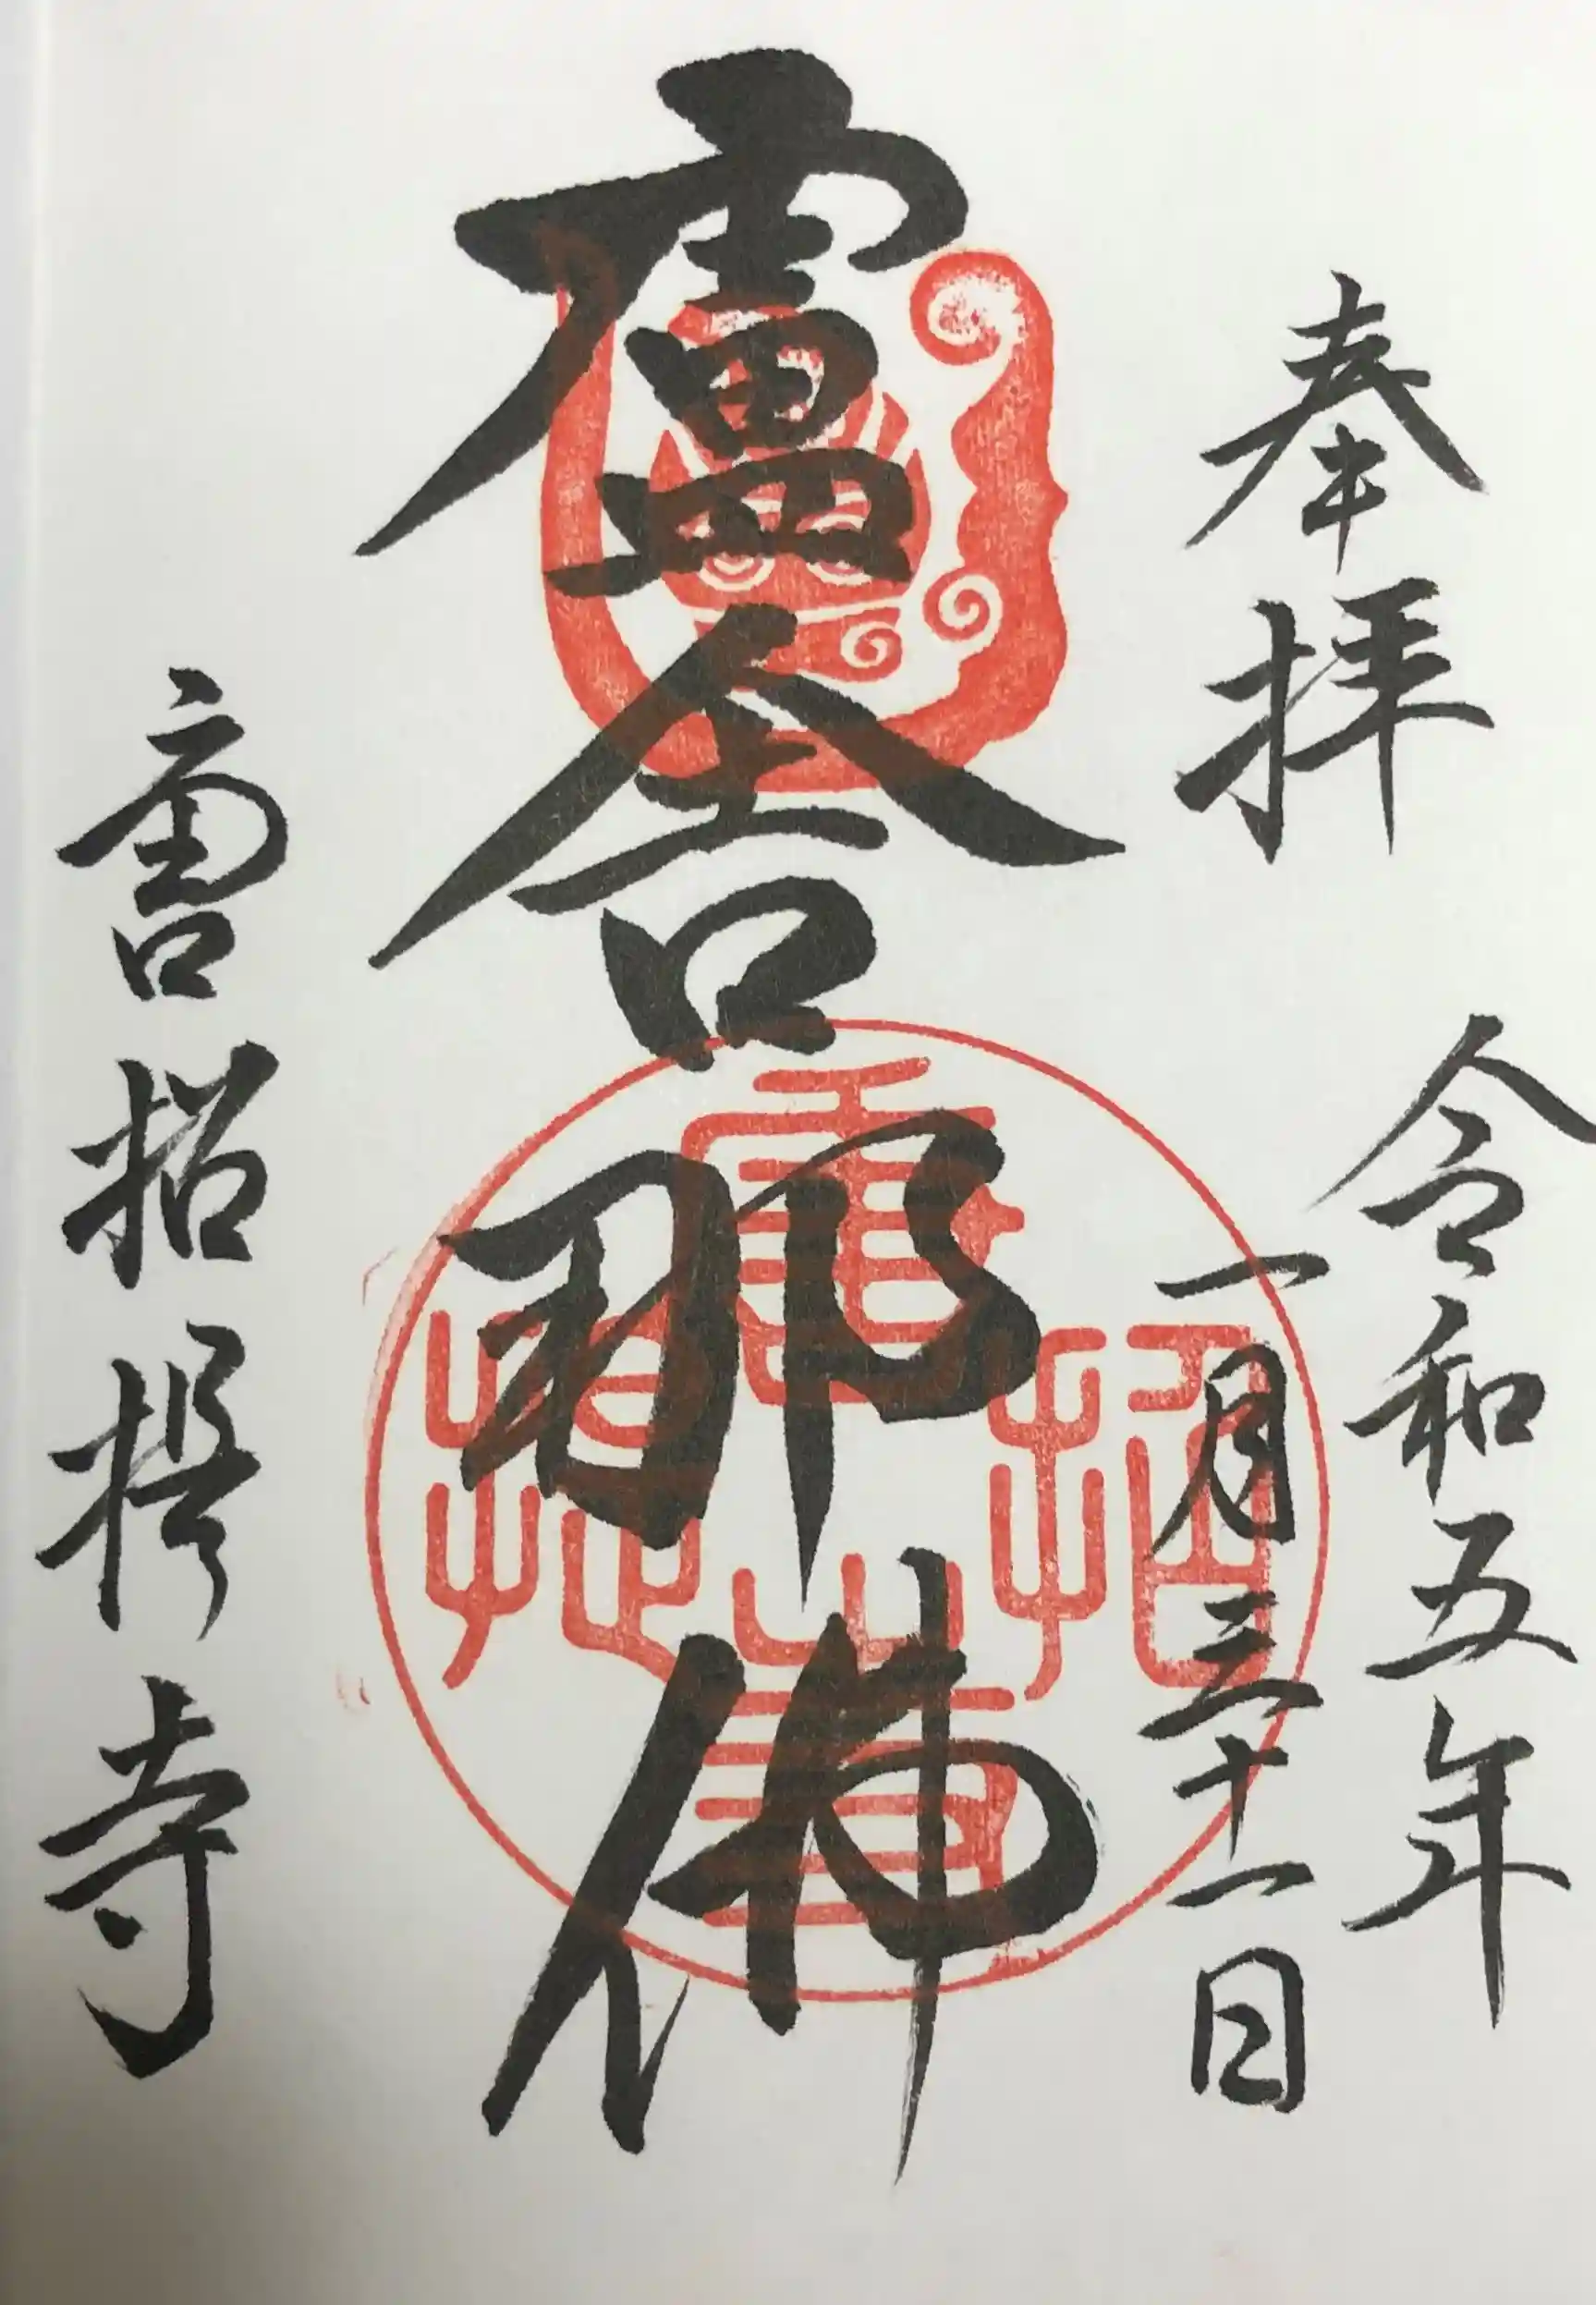 奉拝
令和五年
一月三十一日
盧舎那佛
唐招提寺